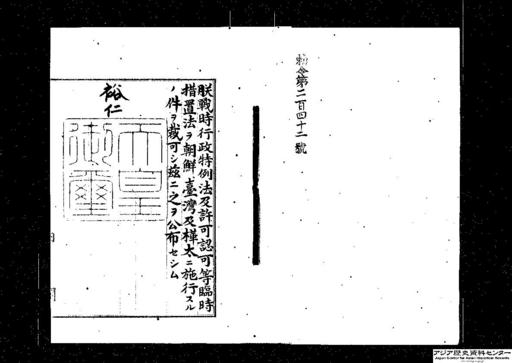 勅令第二百四十二號
朕戰時行政特例法及許可認可等臨時
措置法ヲ朝鮮、臺灣及樺太ニ施行スル
ノ件ヲ裁可シ茲ニ之ヲ公布セシム
裕仁
天皇
御璽
アジア歴史資料センター
Japan Center for Asian Historical Records